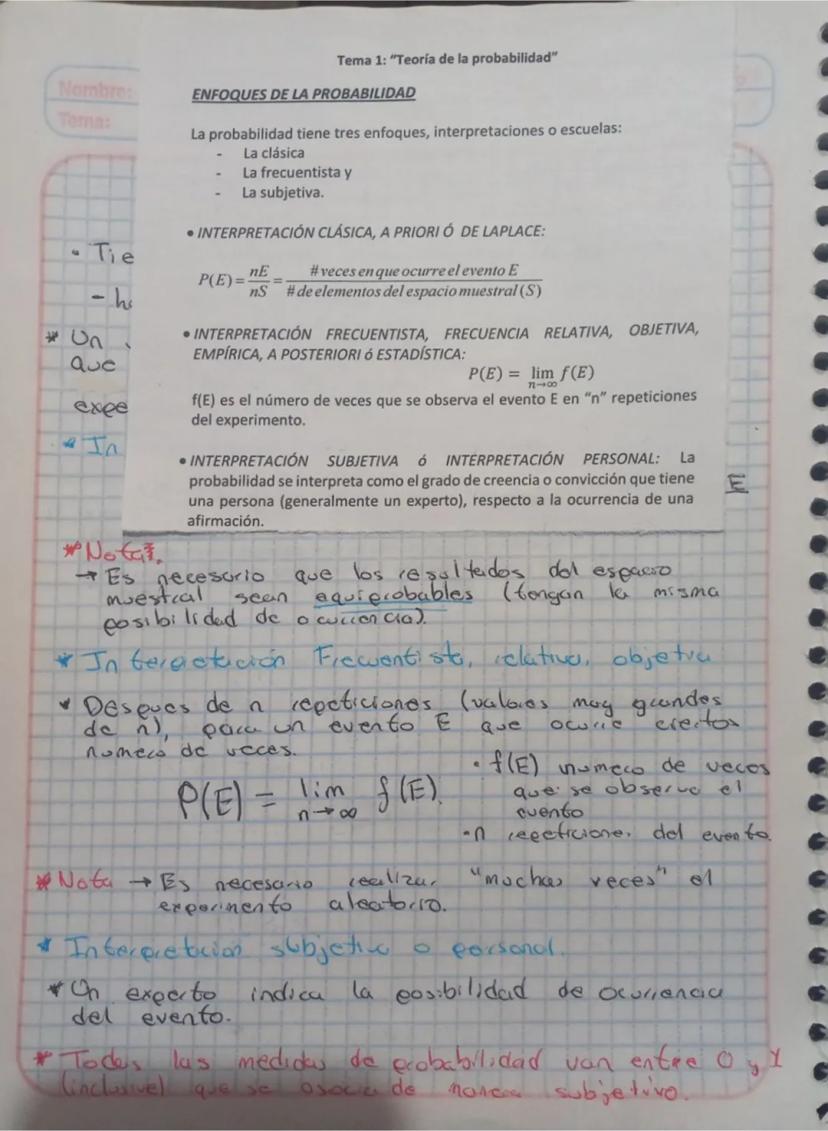 Nombre:
Tema:
Tema 1: "Teoría de la probabilidad"
ENFOQUES DE LA PROBABILIDAD
La probabilidad tiene tres enfoques, interpretaciones o escuelas:
- La clásica
- La frecuentista y
- La subjetiva.
• INTERPRETACIÓN CLÁSICA, A PRIORI Ó DE LAPLACE:
P(E) = nE/nS = # veces en que ocurre el evento E / # de elementos del espacio muestral (S)
• INTERPRETACIÓN FRECUENTISTA, FRECUENCIA RELATIVA, OBJETIVA,
EMPÍRICA, A POSTERIORI ó ESTADÍSTICA:
P(E) = lim n→∞ f(E)
f(E) es el número de veces que se observa el evento E en "n" repeticiones
del experimento.
• INTERPRETACIÓN SUBJETIVA ó INTERPRETACIÓN PERSONAL: La
probabilidad se interpreta como el grado de creencia o convicción que tiene
una persona (generalmente un experto), respecto a la ocurrencia de una
afirmación.
• Tie
- ha
* Un
que
expe
* In
E
* Nota:
→ Es necesario que los resultados del espacio
muestral sean equiprobables (tengan la misma
posibilidad de ocurrencia).
* Interpretación Frecuentista, relativa, objetiva
* Despues de n repeticiones (valores muy grandes
de n), para un evento E que ocurre ciertos
numero de veces.
P(E) = lim n→∞ f(E).
• f(E) numero de veces
que se observa el
evento
• n repeticiones del evento.
* Nota → Es necesario realizar "muchas veces" el
experimento aleatorio.
* Interpretacion subjetiva o personal.
* Un experto indica la posibilidad de ocurrencia
del evento.
* Todas las medidas de probabilidad van entre 0 y 1
(inclusive) que se asocia de manera subjetivo.